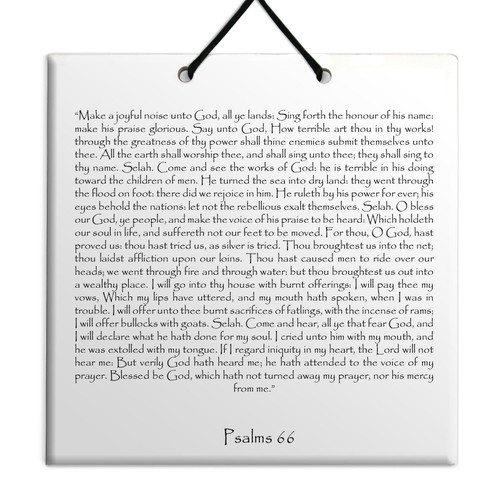 “Make a joyful noise unto God, all ye lands: Sing forth the honour of his name:
make his praise glorious. Say unto God, How terrible art thou in thy works!
through the greatness of thy power shall thine enemies submit themselves unto
thee. All the earth shall worship thee, and shall sing unto thee; they shall sing to
thy name. Selah. Come and see the works of God: he is terrible in his doing
toward the children of men. He turned the sea into dry land: they went through
the flood on foot: there did we rejoice in him. He ruleth by his power for ever; his
eyes behold the nations: let not the rebellious exalt themselves. Selah. O bless
our God, ye people, and make the voice of his praise to be heard: Which holdeth
our soul in life, and suffereth not our feet to be moved. For thou, O God, hast
proved us: thou hast tried us, as silver is tried. Thou broughtest us into the net;
thou laidst affliction upon our loins. Thou hast caused men to ride over our
heads; we went through fire and through water: but thou broughtest us out into
a wealthy place. I will go into thy house with burnt offerings: I will pay thee my
vows, Which my lips have uttered, and my mouth hath spoken, when I was in
trouble. I will offer unto thee burnt sacrifices of fatlings, with the incense of rams;
I will offer bullocks with goats. Selah. Come and hear, all ye that fear God, and
I will declare what he hath done for my soul. I cried unto him with my mouth, and
he was extolled with my tongue. If I regard iniquity in my heart, the Lord will not
hear me: But verily God hath heard me; he hath attended to the voice of my
prayer. Blessed be God, which hath not turned away my prayer, nor his mercy
from me.”
Psalms 66